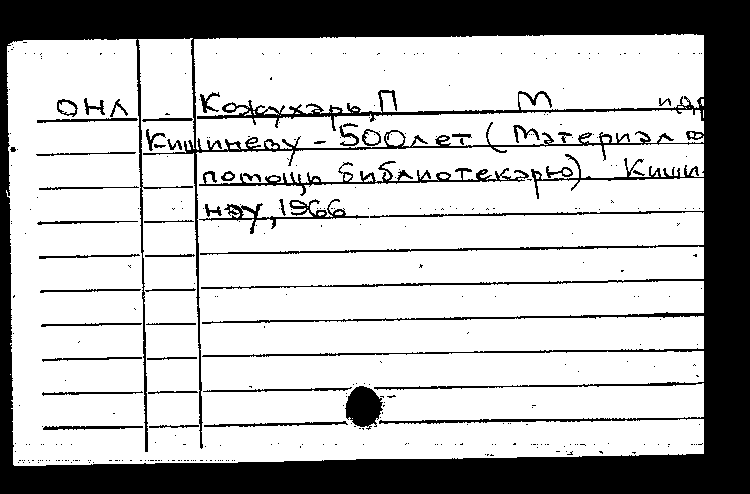 ОНЛ Кожухарь, П М и др
Кишиневу - 500 лет (Материал в
помощь библиотекарю). Кишинэу, 1966